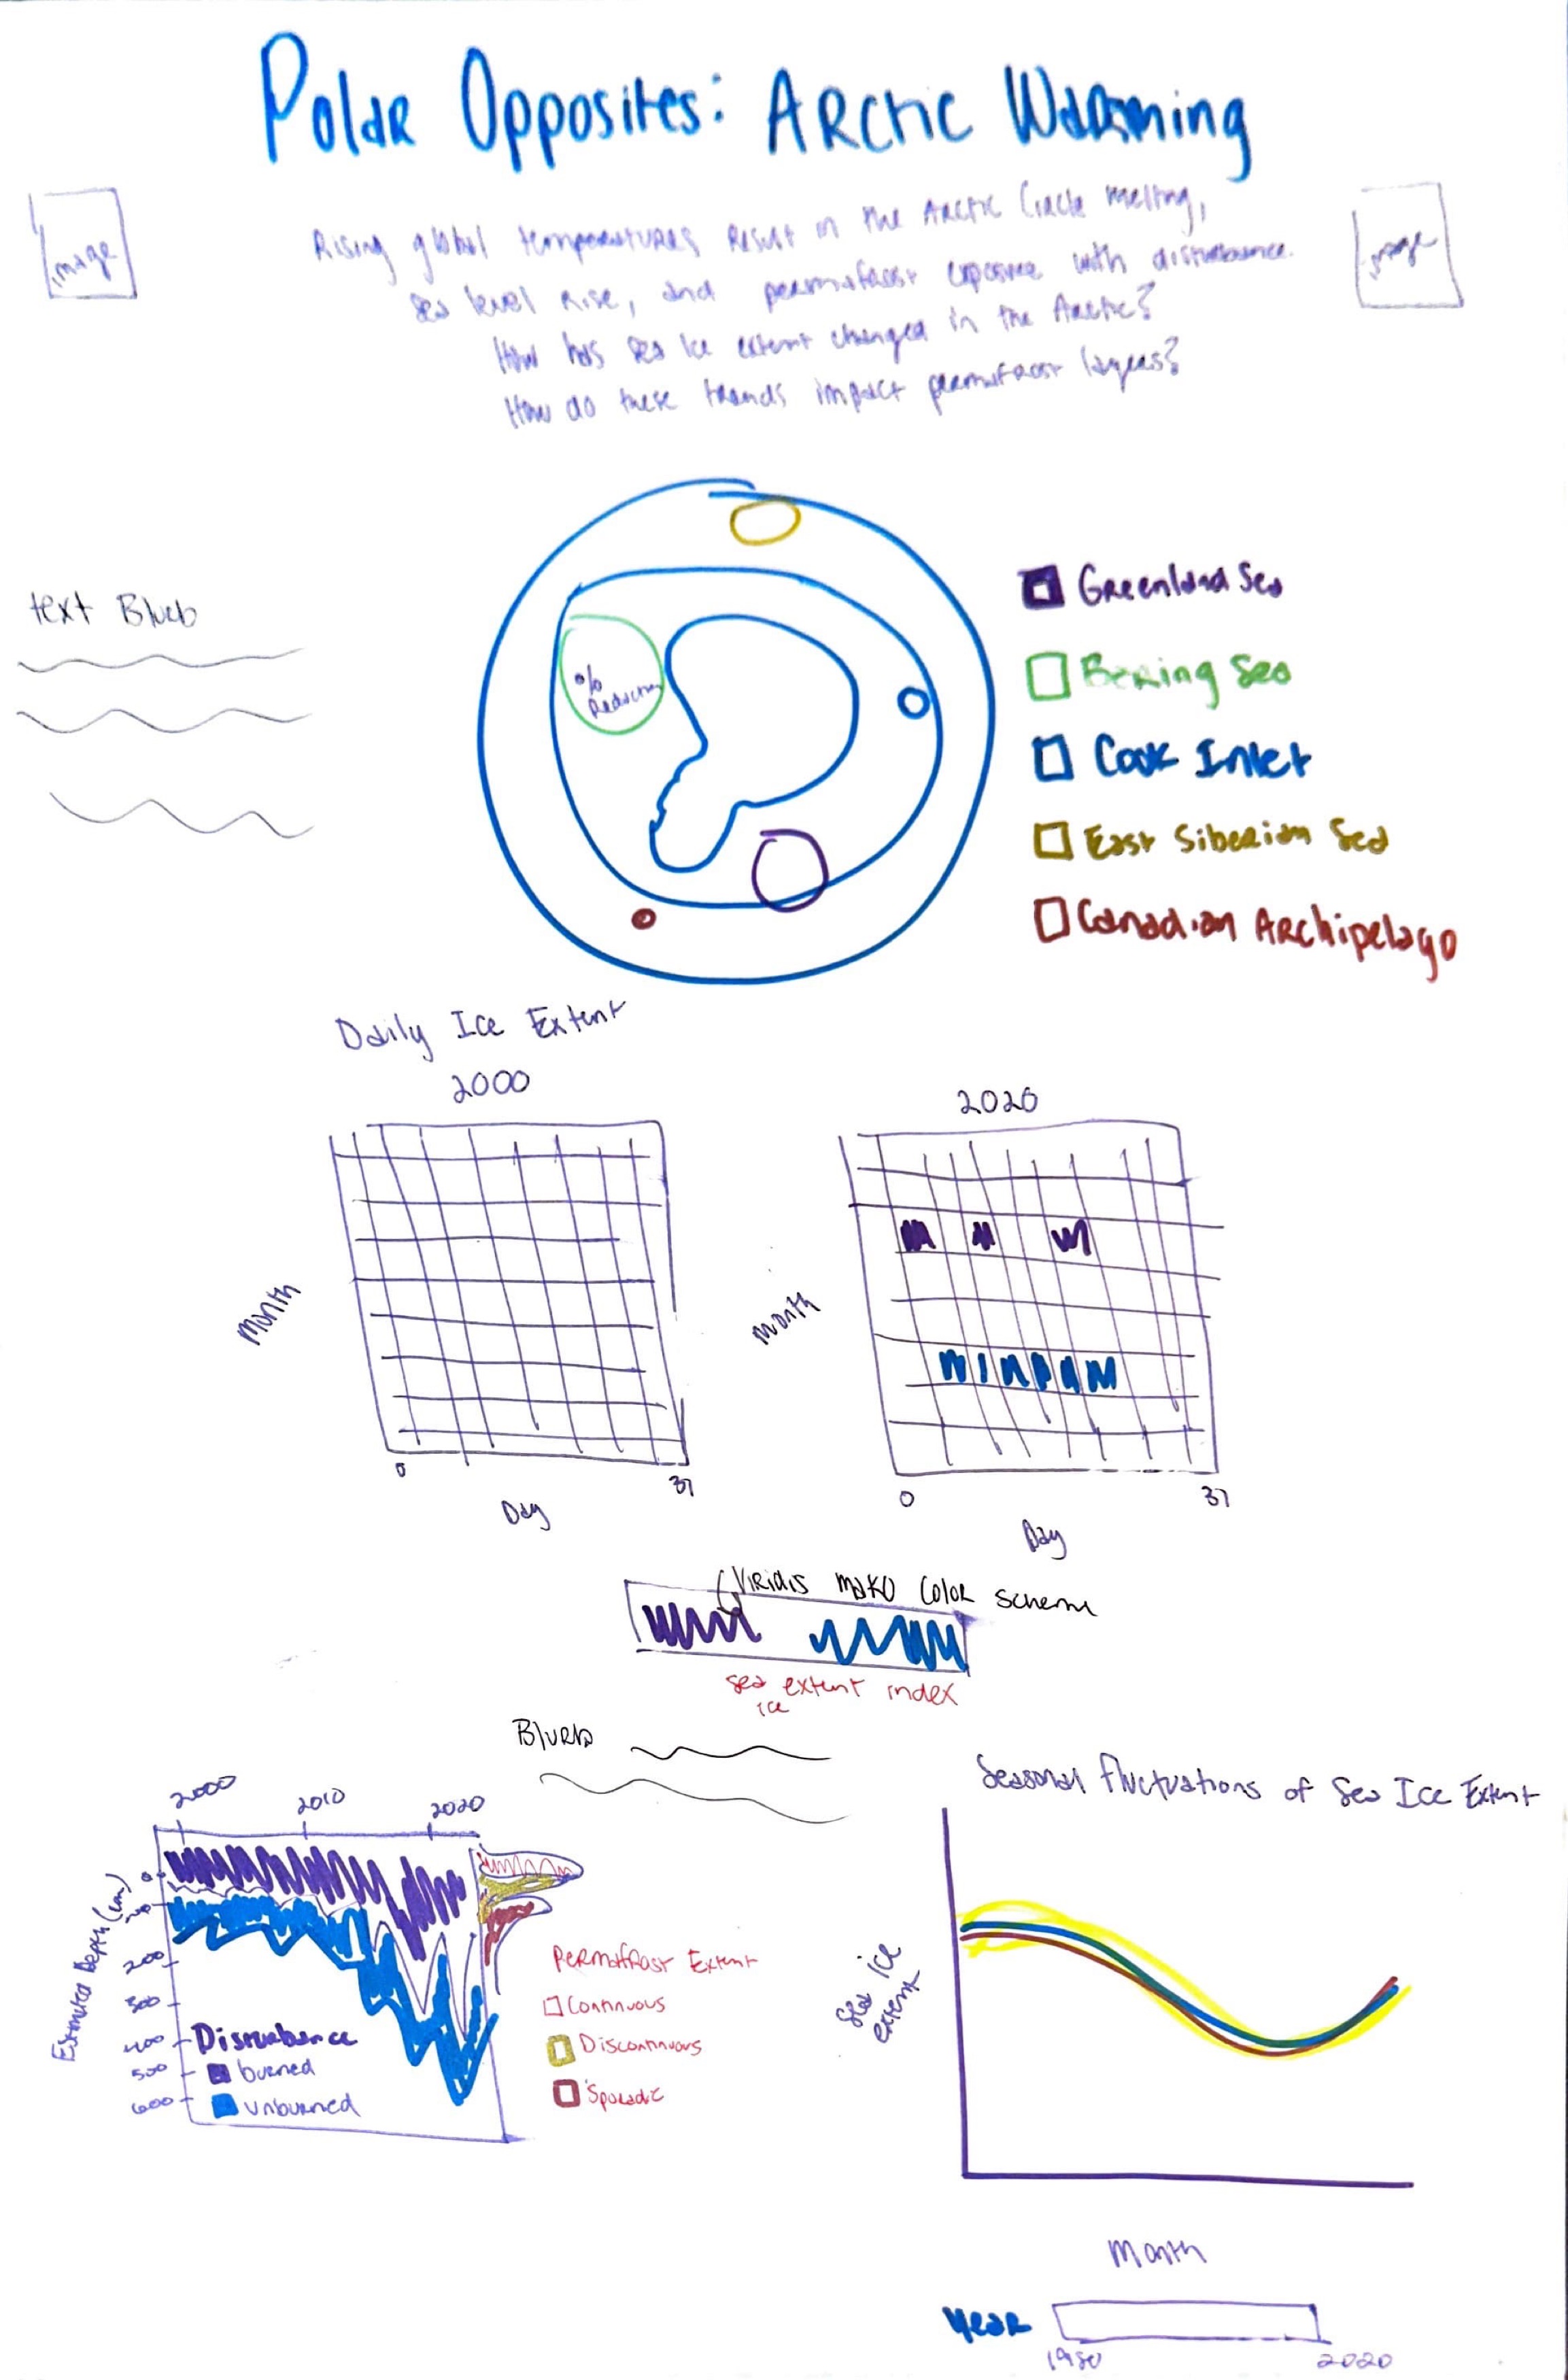 Polar Opposites: Arctic Warming
image
image
Rising global temperatures result in the Arctic Circle melting,
sea level rise, and permafrost exposure with disturbance.
How has sea ice extent changed in the Arctic?
How do these trends impact permafrost layers?
text Blurb
% Reduction
Greenland Sea
Bering Sea
Cook Inlet
East Siberian Sea
Canadian Archipelago
Daily Ice Extent
2000
2020
Month
Month
0
31
0
31
Day
Day
(Viridis mako color scheme
sea ice extent index
Blurb
2000
2010
2020
Estimated Depth (cm)
0
200
300
400
500
600
Disturbance
burned
unburned
Permafrost Extent
Continuous
Discontinuous
Sporadic
Seasonal fluctuations of Sea Ice Extent
Sea ice
extent
Month
Year
1980
2020